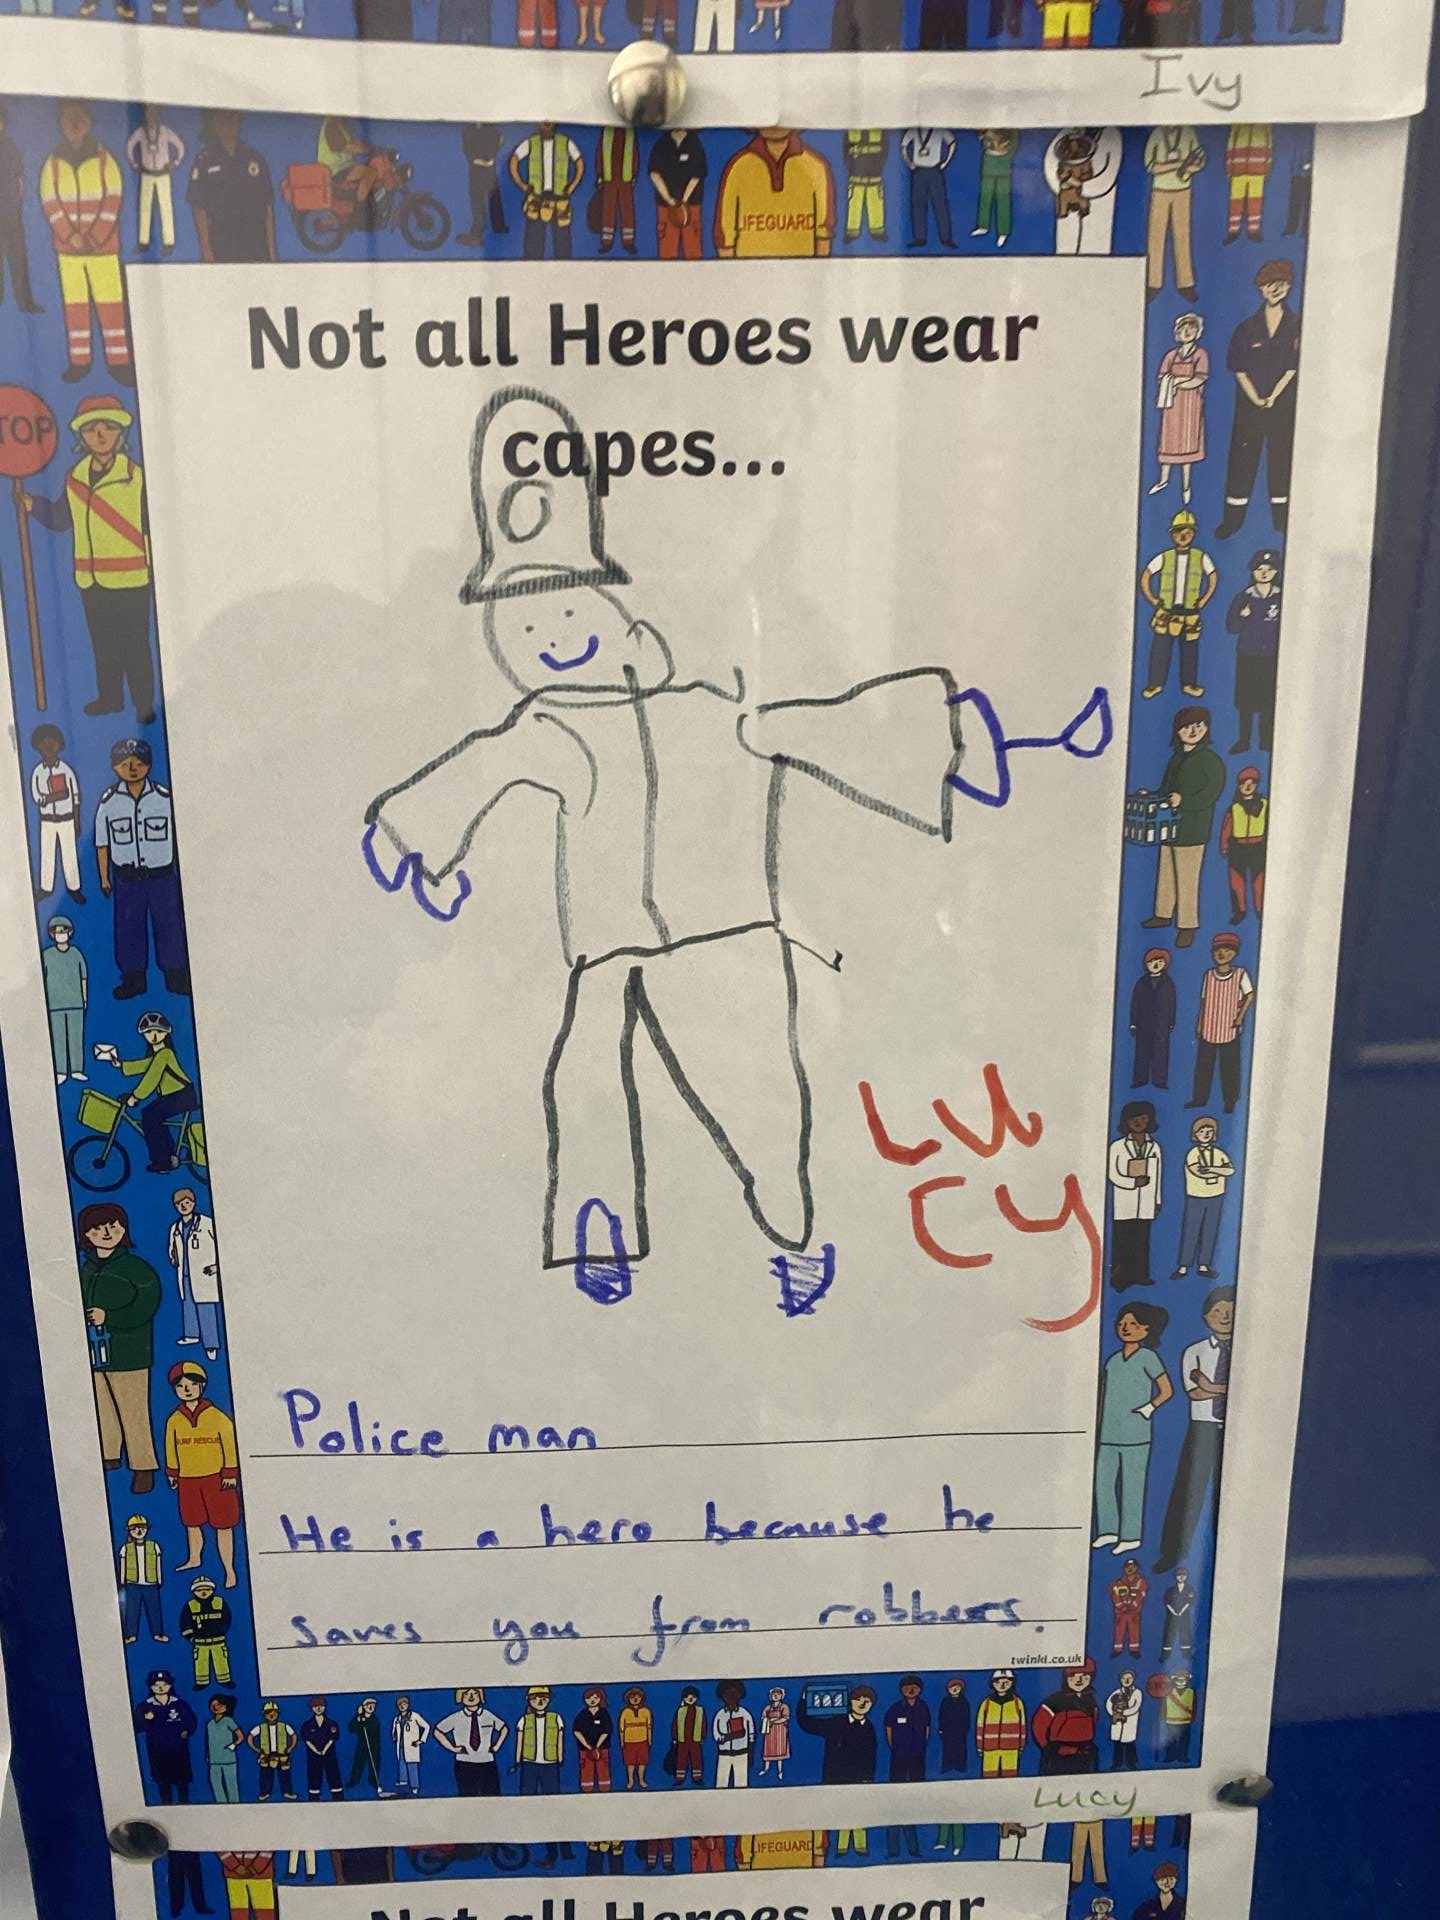 Ivy
LIFEGUARD
Not all Heroes wear
capes...
TOP
LU
CY
SURF RESCUE
Police man
He is a hero because he
saves you from robbers.
twinkl.co.uk
Lucy
LIFEGUARD
Not all Heroes wear